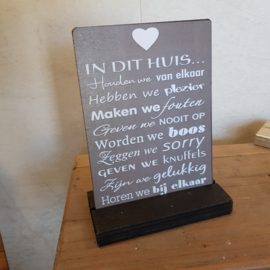 IN DIT HUIS...
Houden we van elkaar
Hebben we plezier
Maken we fouten
Geven we NOOIT OP
Worden we boos
Zeggen we SORRY
GEVEN WE KNUFFELS
Zijn we gelukkig
Horen we bij elkaar